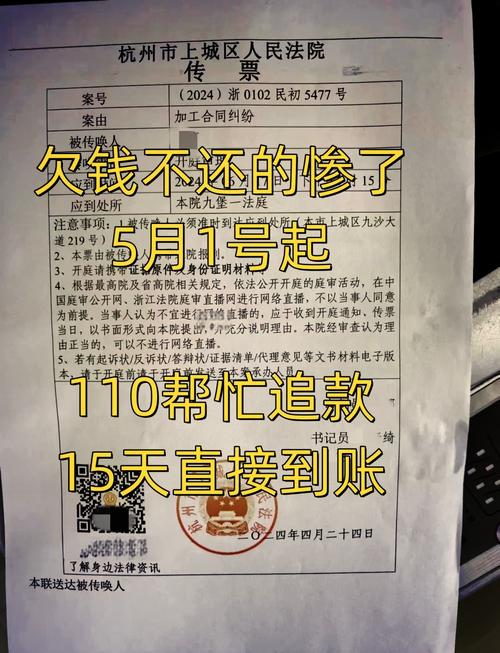 杭州市上城区人民法院
传 票
案号 （2024）浙 0102 民初 5477 号
案由 加工合同纠纷
被传唤人
欠钱不还的惨了
应到处所 本院九堡一法庭
5月1号起
道 219 号）
3、开庭请携带证据原件及身份证明材料。
4、根据最高院及省高院相关规定，依法公开开庭的庭审活动，在中
国庭审公开网、浙江法院庭审直播网进行网络直播，不以当事人同意
为前提。当事人认为不宜进行直播的，应于收到开庭通知、传票
当日，以书面形式向本院提出，说明理由。本院经审查认为理
由正当的，可以不进行网络直播。
5、若有起诉状/反诉状/答辩状/证据清单/代理意见等文书材料电子版
本，请于开庭前请于开庭前发送至本案承办人员
110帮忙追款
书记员 绮
15天直接到账
二〇二四年四月二十四日
了解身边法律资讯
本联送达被传唤人